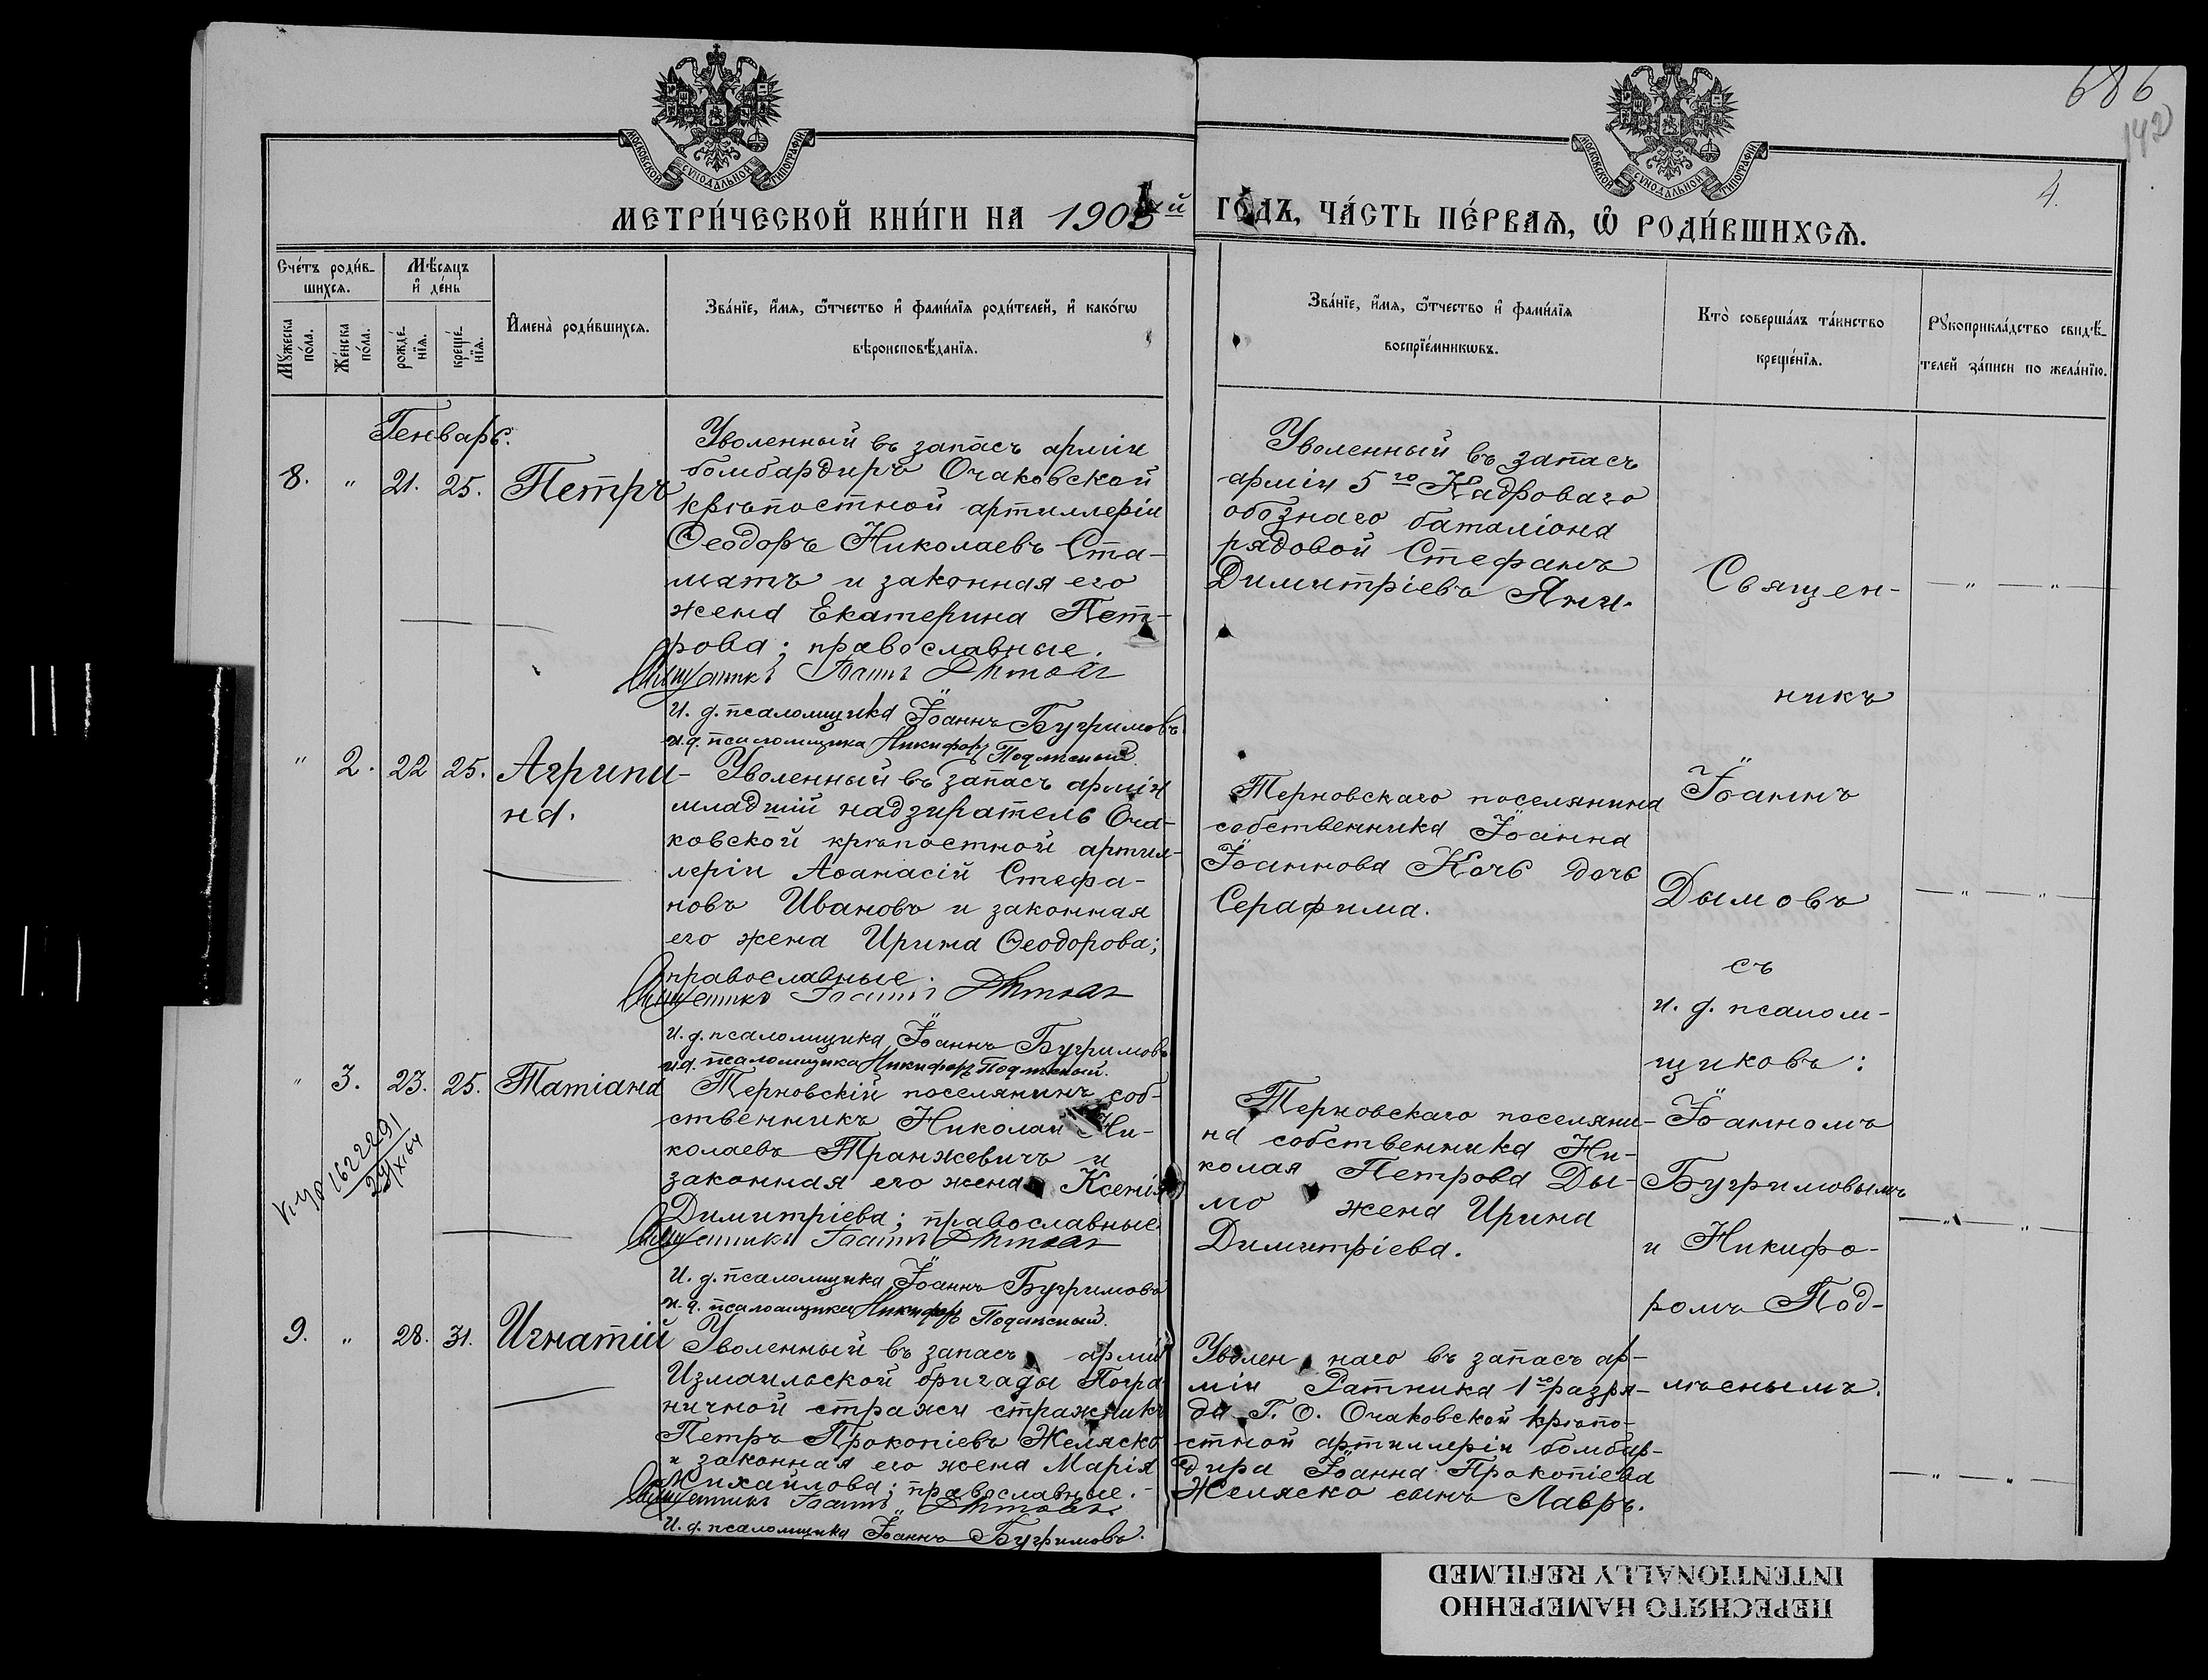 686
142
4.
МОСКОВСКОЙ СѴНОДАЛЬНОЙ ТИПОГРАФІИ
МОСКОВСКОЙ СѴНОДАЛЬНОЙ ТИПОГРАФІИ
МЕТРИ́ЧЕСКОЙ КНИ́ГИ НА 190 й ГО́ДЪ, ЧА́СТЬ ПЕ́РВАѦ, Ѽ РОДИ́ВШИХСѦ.
Сче́тъ роди́в-
шихсѧ.
Мѣ́сѧцъ
и҆ де́нь
Мꙋ́жеска по́ла.
Же́нска по́ла.
рожде́-
нїѧ.
креще́-
нїѧ.
И҆мена̀ роди́вшихсѧ.
Зва́нїе, и҆́мѧ, ѻ҆́тчество и҆ фамѝлїѧ роди́телей, и҆ како́гѡ
вѣроисповѣ́данїѧ.
Зва́нїе, и҆́мѧ, ѻ҆́тчество и҆ фамѝлїѧ
воспрїе́мникѡвъ.
Кто̀ соверша́лъ та́инство
креще́нїѧ.
Рꙋкоприкла́дство свидѣ́-
телей за́писи по жела́нїю.
Генварь.
8. " 21. 25. Петръ
Уволенный въ запасъ арміи
бомбардиръ Очаковской
крѣпостной артиллеріи
Ѳеодоръ Николаевъ Ста-
матъ и законная его
жена Екатерина Пет-
рова; православные.
Священникъ Іоаннъ Дымовъ
И. д. псаломщика Іоаннъ Бугримовъ
и. д. псаломщика Никифоръ Подлѣсный.
Уволенный въ запасъ
арміи 5го Кадроваго
обознаго баталіона
рядовой Стефанъ
Димитріевъ Яни.
Священ-
никъ
Іоаннъ
Дымовъ
съ
и. д. псалом-
щиковъ:
Іоанномъ
Бугримовымъ
и Никифо-
ромъ Под-
лѣснымъ.
— " — " —
" 2. 22 25. Агрипи-
на.
Уволенный въ запасъ арміи
младшій надзиратель Оча-
ковской крѣпостной артил-
леріи Аѳанасій Стефа-
новъ Ивановъ и законная
его жена Ирина Ѳеодорова;
православные.
Священникъ Іоаннъ Дымовъ
И. д. псаломщика Іоаннъ Бугримовъ
и. д. псаломщика Никифоръ Подлѣсный.
Терновскаго поселянина
собственника Іоанна
Іоаннова Кочь дочь
Серафима.
— " — " —
" 3. 23. 25. Татіана
Терновскій поселянинъ соб-
ственникъ Николай Ни-
колаевъ Транжевичъ и
законная его жена Ксенія
Димитріева; православные.
Священникъ Іоаннъ Дымовъ
И. д. псаломщика Іоаннъ Бугримовъ
и. д. псаломщика Никифоръ Подлѣсный.
Терновскаго поселяни-
на собственника Ни-
колая Петрова Ды-
мо жена Ирина
Димитріева.
— " — " —
1622291
9. " 28. 31. Игнатій
Уволенный въ запасъ арміи
Измаильской бригады Погра-
ничной стражи стражникъ
Петръ Прокопіевъ Желяско
и законная его жена Марія
Михайлова; православные.
Священникъ Іоаннъ Дымовъ
И. д. псаломщика Іоаннъ Бугримовъ.
Уволеннаго въ запасъ ар-
міи Ратника 1го разря-
да Г. О. Очаковской крѣпо-
стной артиллеріи бомбар-
дира Іоанна Прокопіева
Желяско сынъ Лавръ.
— " — " —
INTENTIONALLY REFILMED
ПЕРЕСНЯТО НАМЕРЕННО